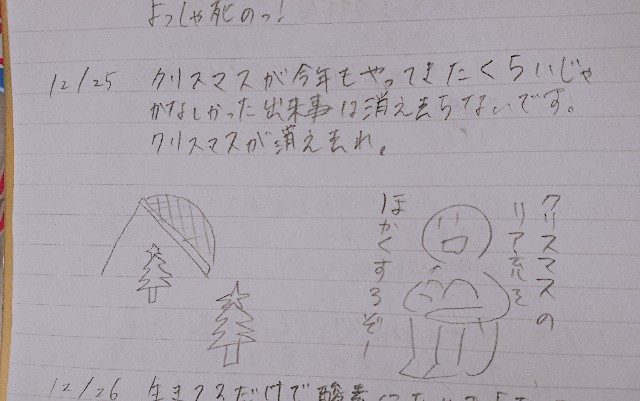 よっしゃ死のっ!
12/25 クリスマスが今年もやってきたくらいじゃ
かなしかった出来事は消え去らないです。
クリスマスが消え去れ。
クリスマスの
リア充を
ほかくするぞー
12/26 生きてるだけで酸素